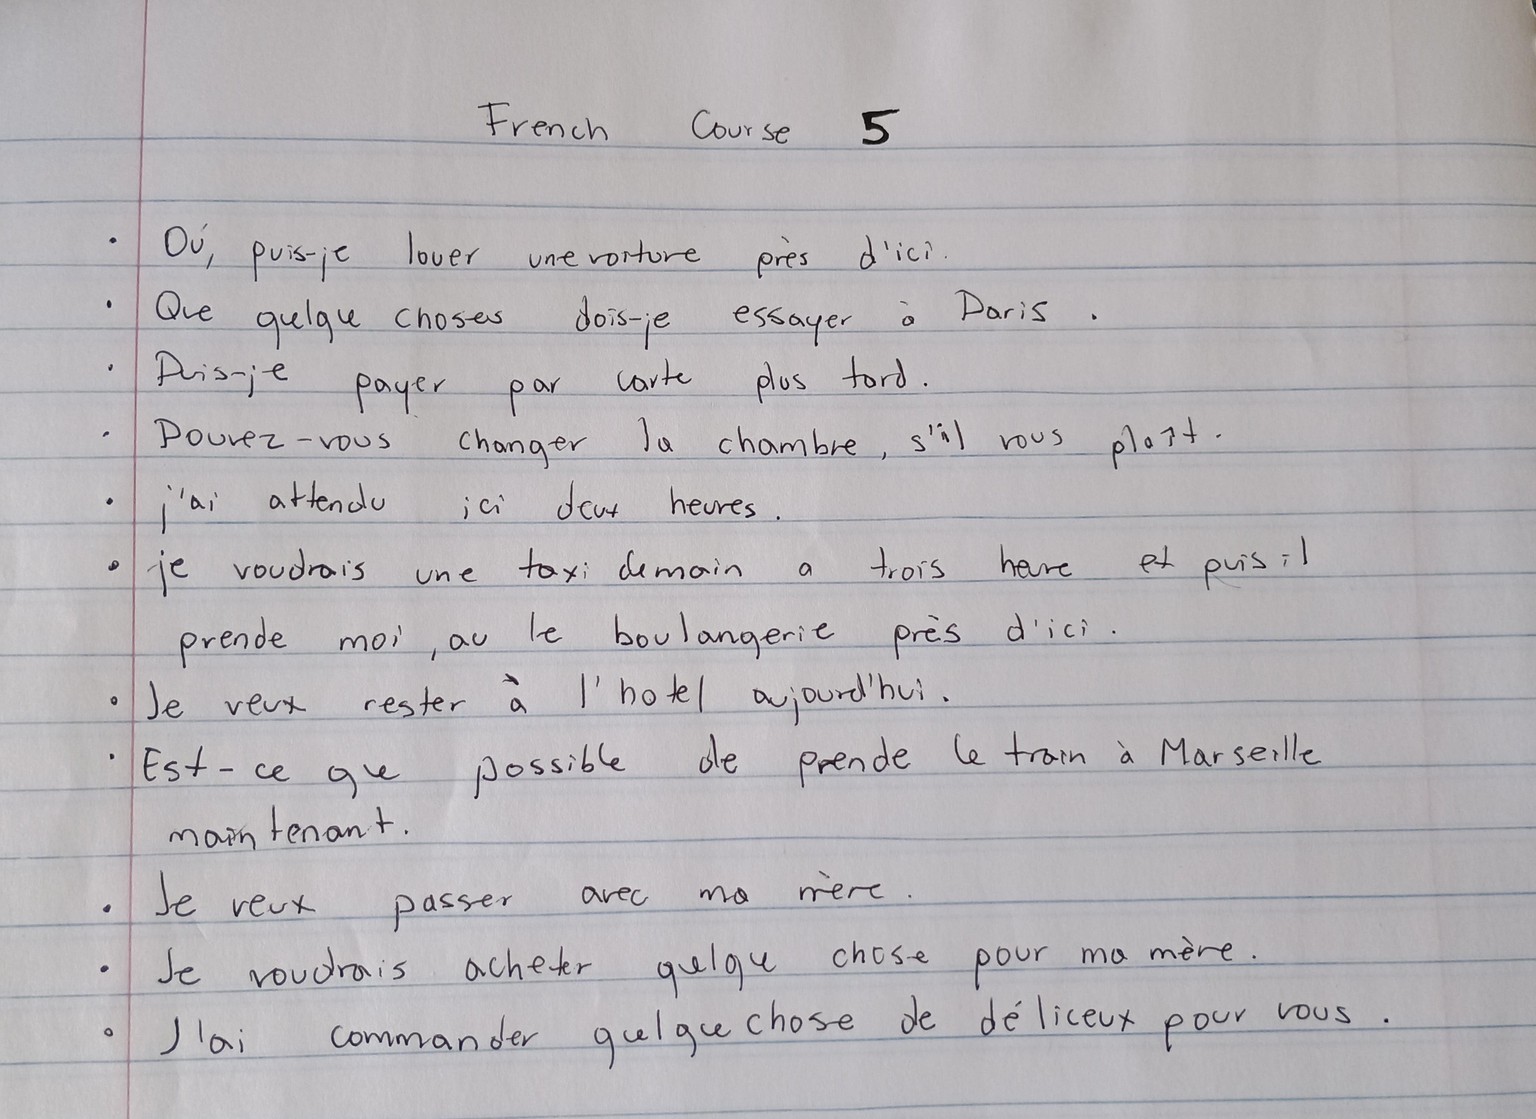 French Course 5
• Oú, puis-je louer une voiture près d'ici.
• Que quelque choses dois-je essayer à Paris.
• Puis-je payer par carte plus tard.
• Pouvez-vous changer la chambre, s'il vous plaît.
• j'ai attendu ici deux heures.
• je voudrais une taxi demain a trois heure et puis il
prende moi, au le boulangerie près d'ici.
• Je veux rester à l'hotel aujourd'hui.
• Est-ce que possible de prende le train à Marseille
maintenant.
• Je veux passer avec ma mère.
• Je voudrais acheter quelque chose pour ma mère.
• J'ai commander quelque chose de déliceux pour vous.